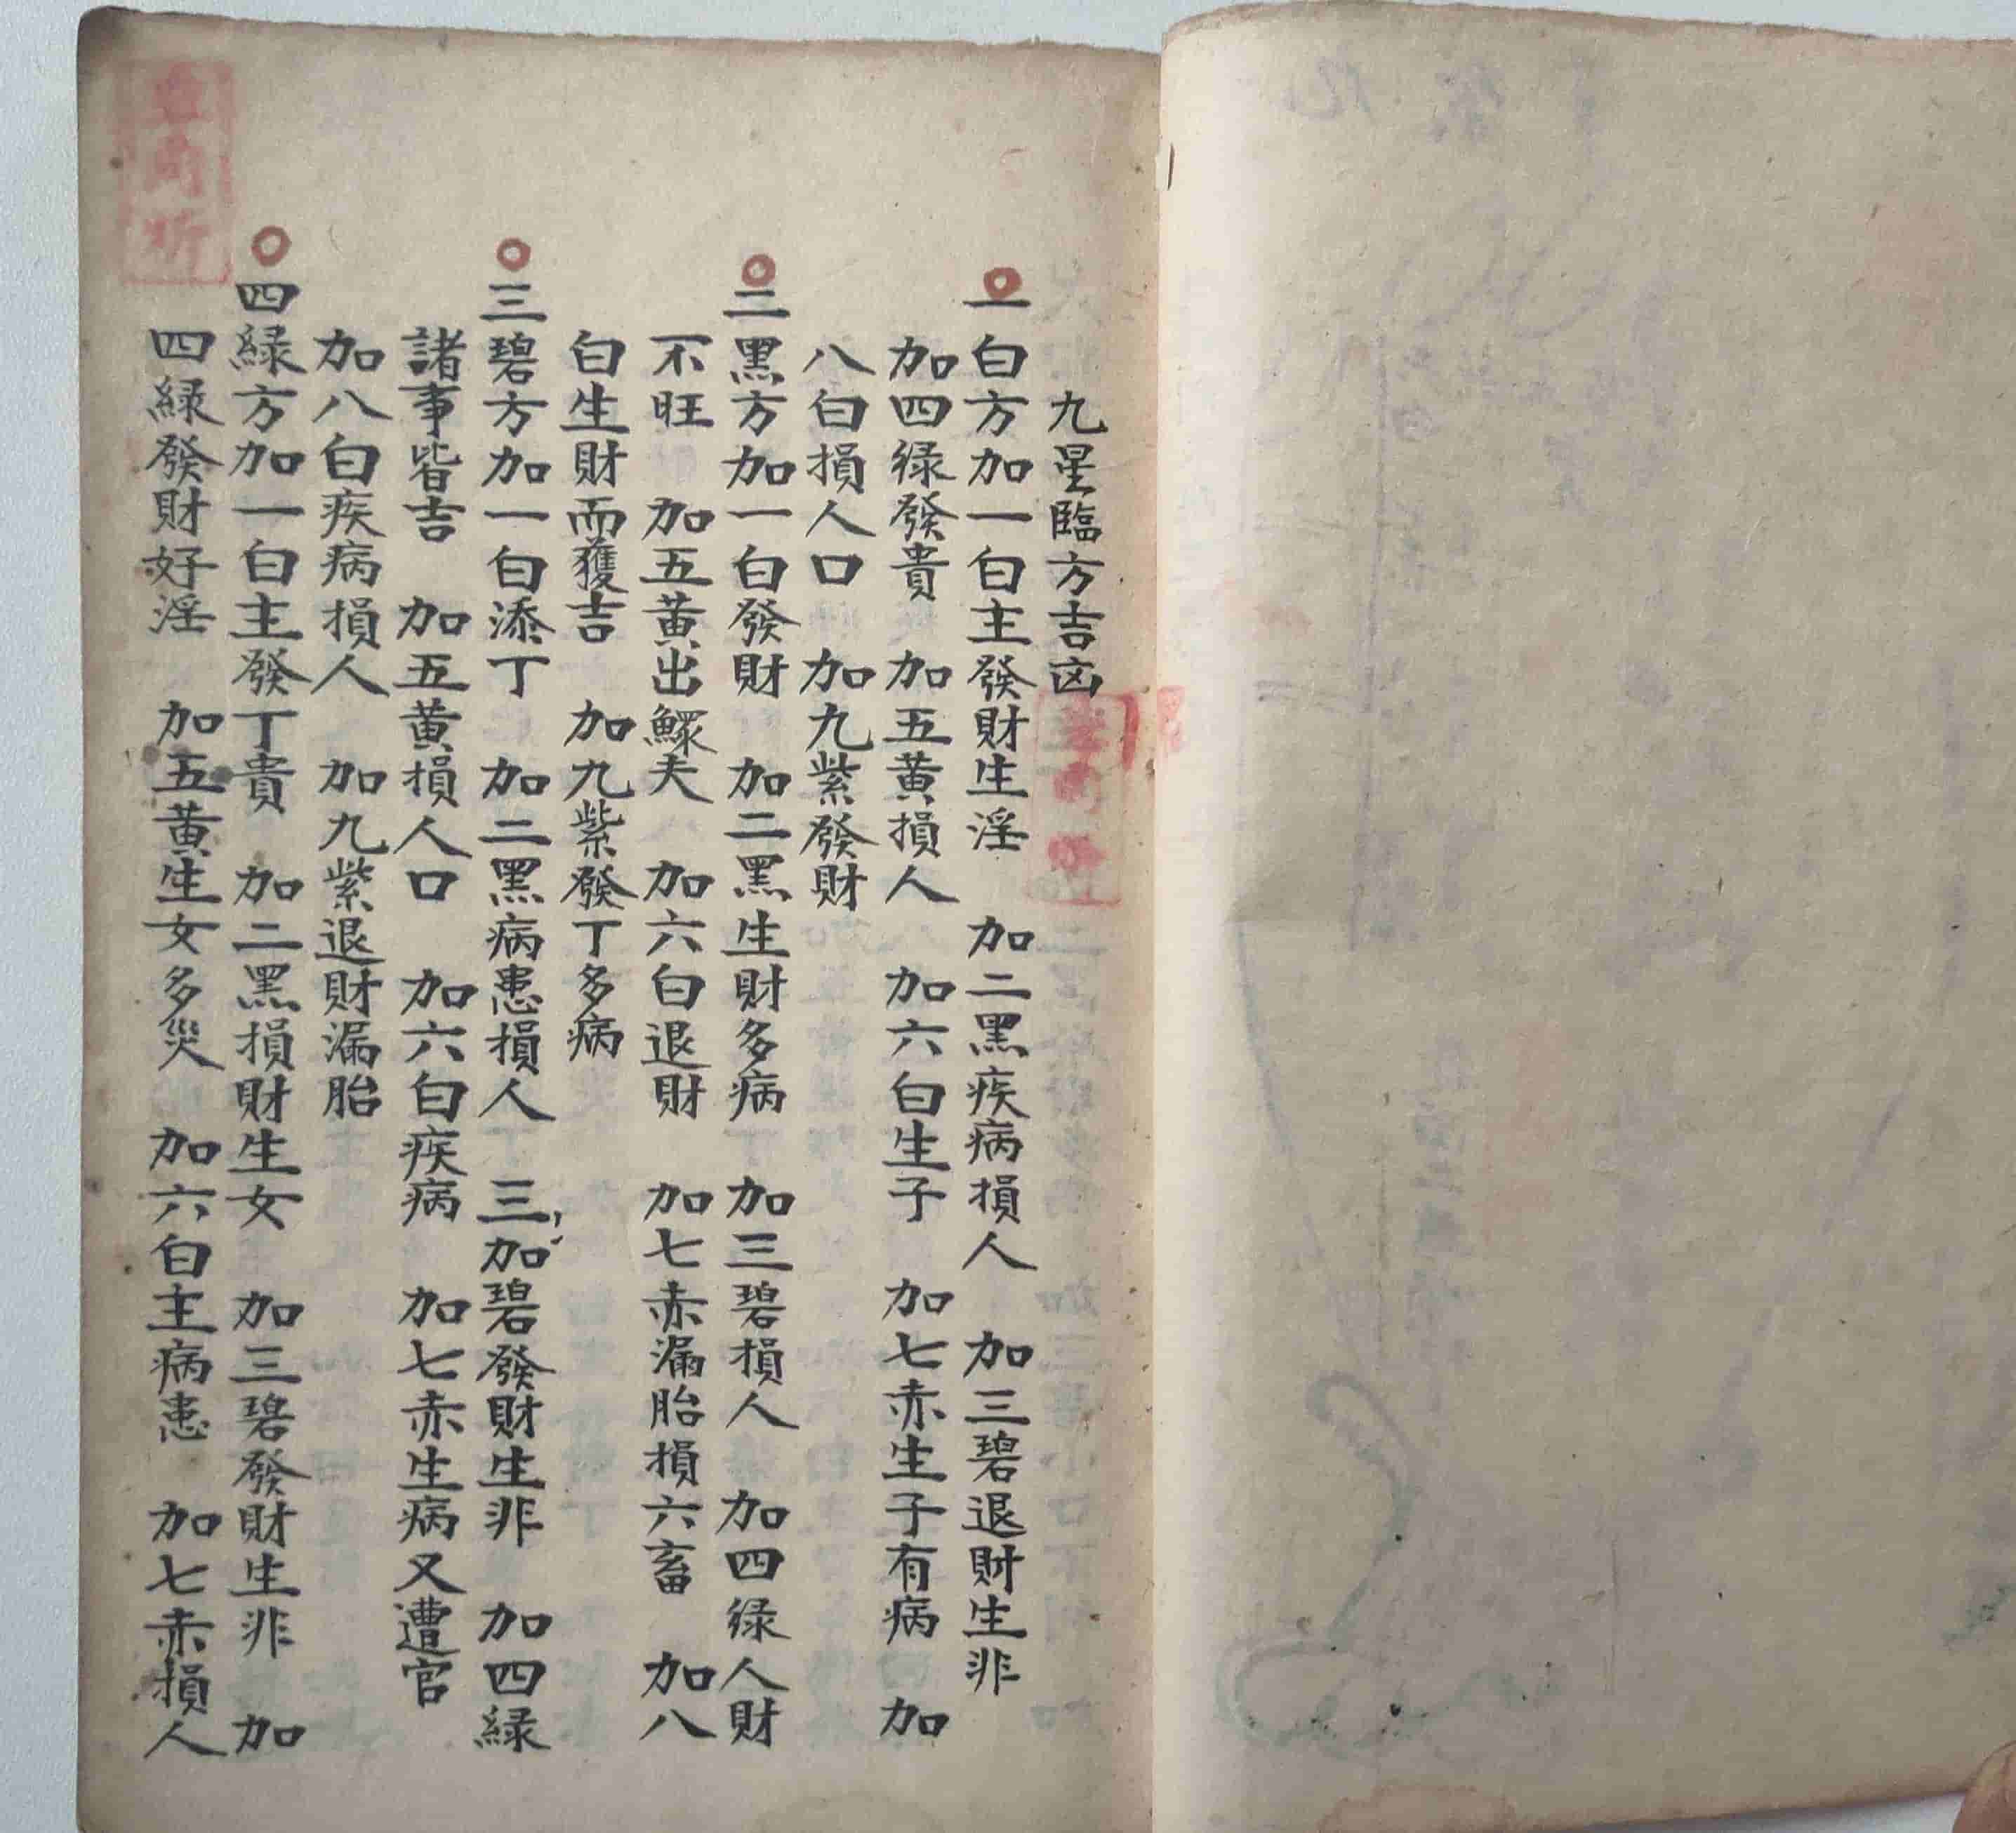 九星臨方吉凶
一白方加一白主發財生淫　加二黑疾病損人　加三碧退財生非
加四绿發貴　加五黃損人　加六白生子　加七赤生子有病　加
八白損人口　加九紫發財
二黑方加一白發財　加二黑生財多病　加三碧損人　加四绿人財
不旺　加五黃出鰥夫　加六白退財　加七赤漏胎損六畜　加八
白生財而獲吉　加九紫發丁多病
三碧方加一白添丁　加二黑病患損人　三加碧發財生非　加四緑
諸事皆吉　加五黃損人口　加六白疾病　加七赤生病又遭官
加八白疾病損人　加九紫退財漏胎
四緑方加一白主發丁貴　加二黑損財生女　加三碧發財生非　加
四緑發財好淫　加五黃生女多災　加六白主病患　加七赤損人